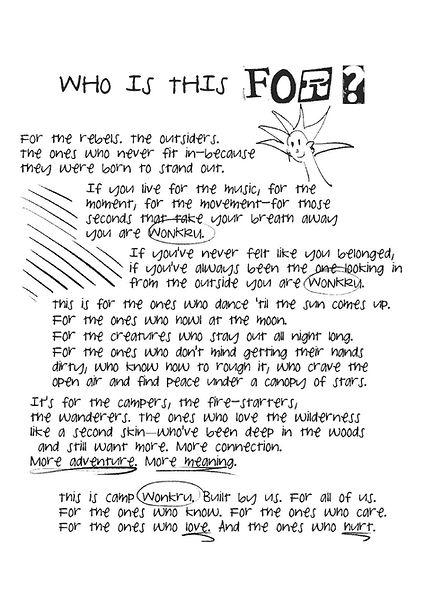 WHO IS THIS FOR?
For the rebels. the outsiders.
the ones who never fit in-because
they were born to stand out.
If you live for the music, for the
moment, for the movement-for those
seconds that take your breath away
you are WONKRU.
If you've never felt like you belonged,
if you've always been the one looking in
from the outside you are WONKRU.
this is for the ones who dance 'til the sun comes up.
For the ones who howl at the moon.
For the creatures who stay out all night long.
For the ones who don't mind getting their hands
dirty, who know how to rough it, who crave the
open air and find peace under a canopy of stars.
It's for the campers, the fire-starters,
the wanderers. the ones who love the wilderness
like a second skin—who've been deep in the woods
and still want more. More connection.
More adventure. More meaning.
this is camp Wonkru. Built by us. For all of us.
For the ones who know. For the ones who care.
For the ones who love. And the ones who hurt.